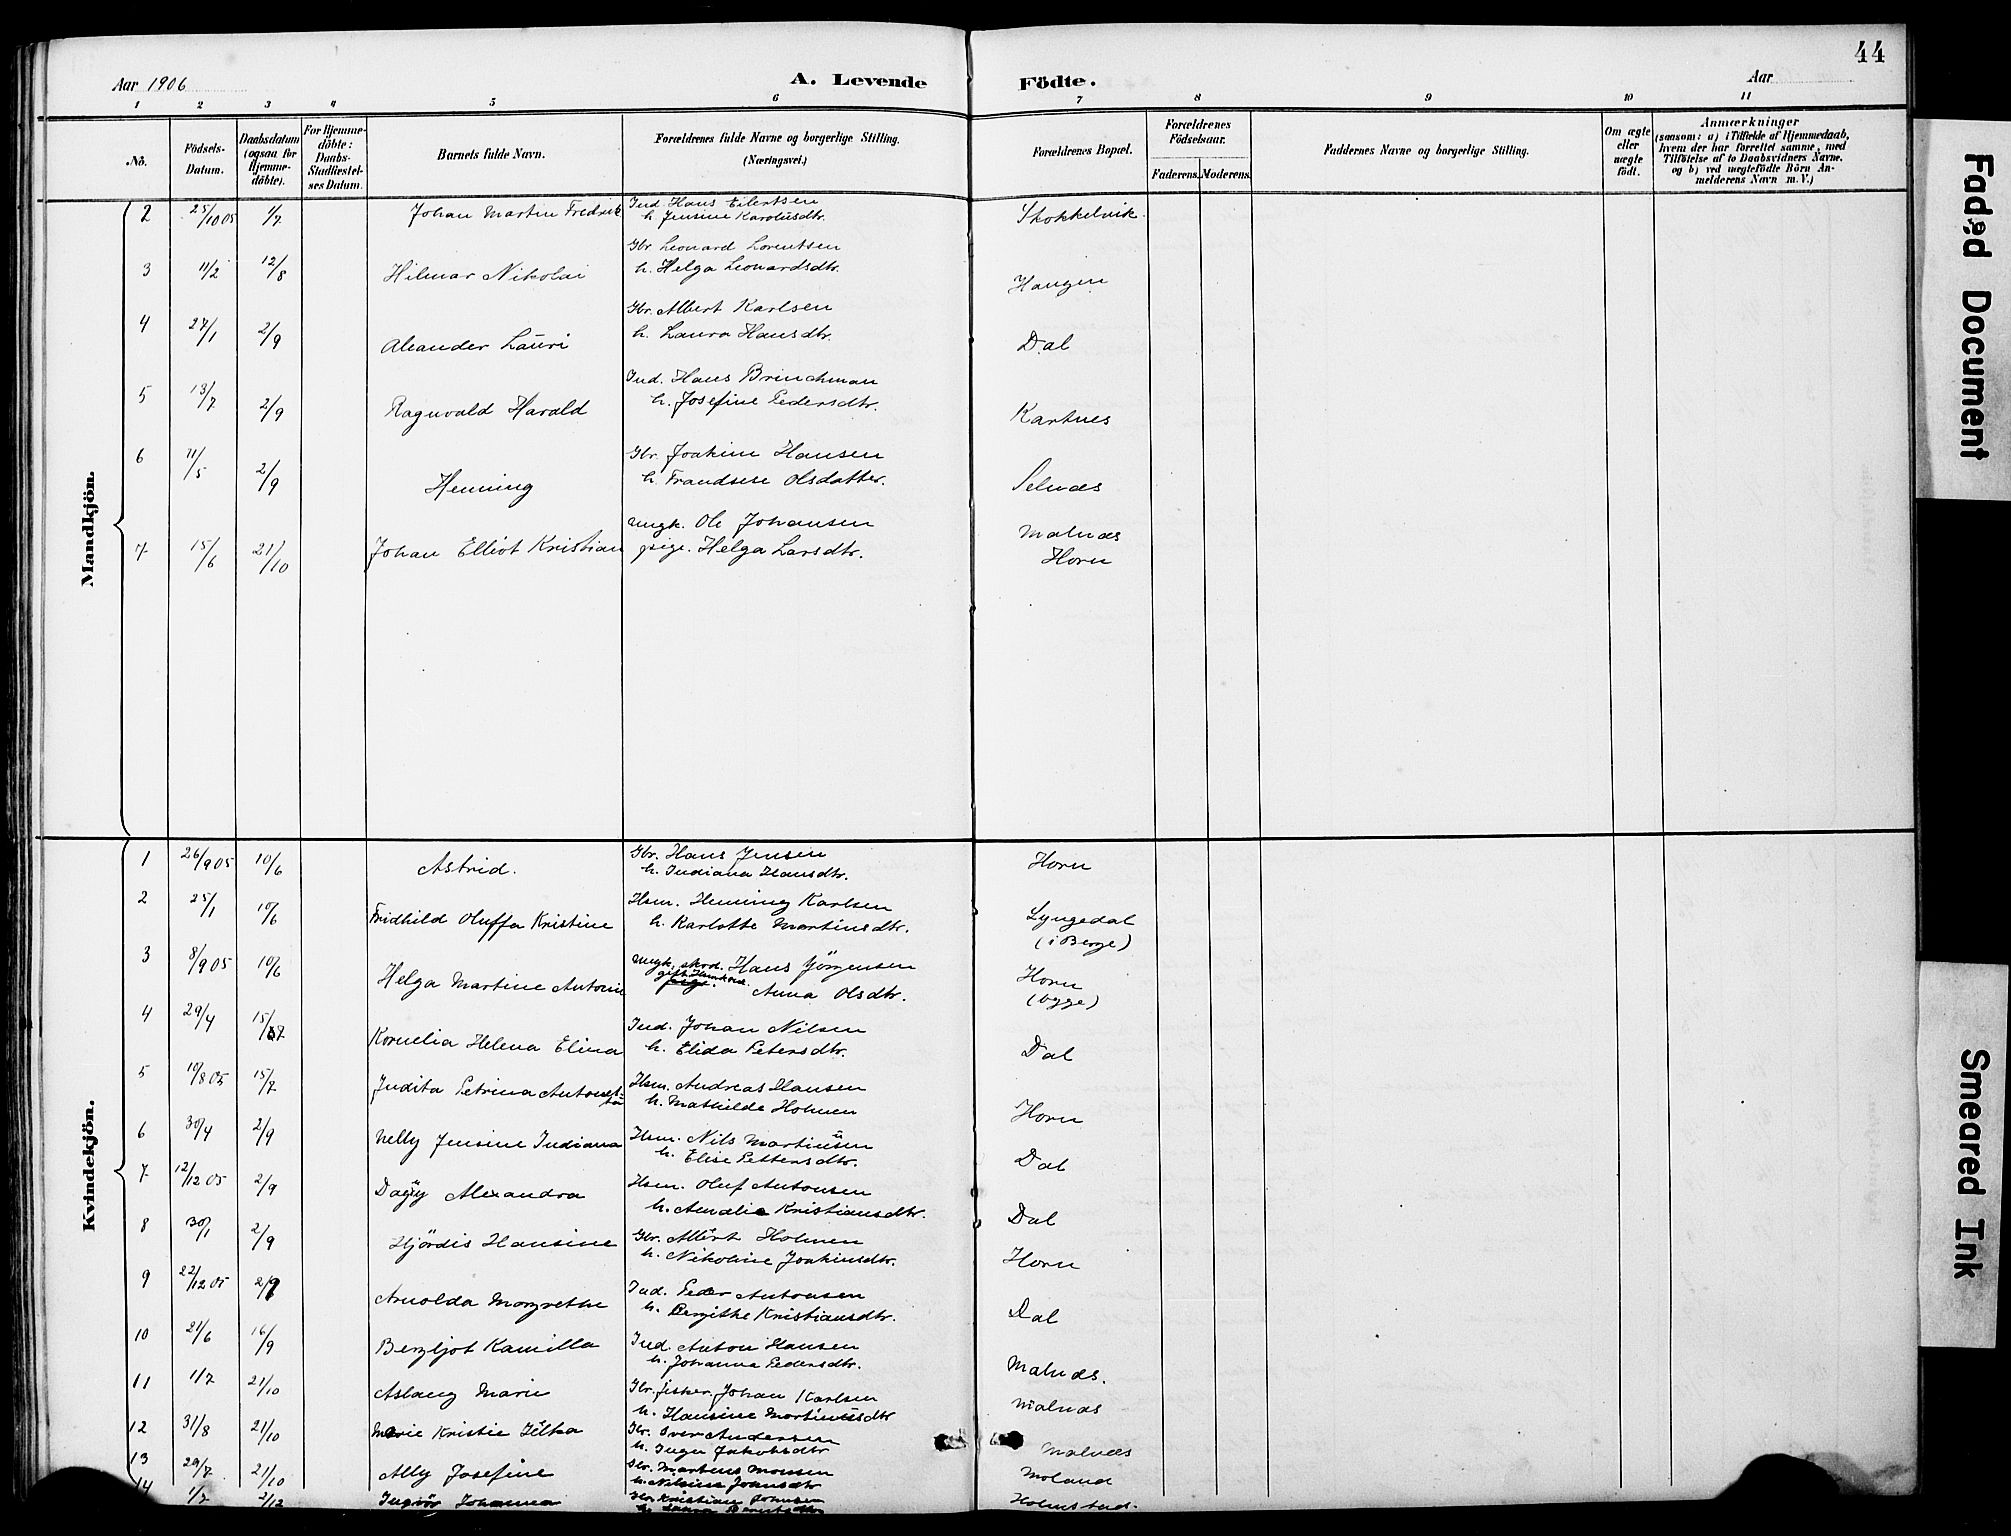 44
Aar 1906
A. Levende Födte.
Aar
1 2 3 4 5 6 7 8 9 10 11
No.
Födsels-Datum.
Daabsdatum (ogsaa for Hjemme-döbte).
For Hjemme-döbte: Daabs-Stadfæstel-ses Datum.
Barnets fulde Navn.
Forældrenes fulde Navne og borgerlige Stilling. (Næringsvei.)
Forældrenes Bopæl.
Forældrenes Födselsaar.
Faderens. Moderens.
Faddernes Navne og borgerlige Stilling.
Om ægte eller uægte födt.
Anmærkninger
(saasom: a) i Tilfælde af Hjemmedaab,
hvem der har forrettet samme, med
Tilföielse af to Daabsvidners Navne,
og b) ved uægtefödte Börn An-
melderens Navn m. V.)
Mandkjön.
2 25/10 05 1/7 Johan Martin Fredrik Ind. Hans Eilertsen Stokkelvik.
h. Jensine Karolusdtr.
3 11/2 12/8 Hilmar Nikolai Gbr. Leonard Lorentsen Haugen
h. Helga Leonardsdtr.
4 27/1 2/9 Aleander Lauri Gbr. Albert Karlsen Dal
h. Laura Hansdtr.
5 13/7 2/9 Ragnvald Harald Ind. Hans Brinchman Kartnes
h. Josefine Pedersdtr.
6 11/5 2/9 Henning Gbr. Joakim Hansen Selnæs
h. Frandsese Olsdatter.
7 15/6 21/10 Johan Elliot Kristian Ungk. Ole Johansen Malnæs
pige. Helga Larsdtr. Horn
Kvindekjön.
1 26/9 05 10/6 Astrid. Gbr. Hans Jensen Horn
h. Indiana Hansdtr.
2 25/1 10/6 Fridhild Oluffa Kristine Hsm. Henning Karlsen Lyngedal
h. Karlotte Martinsdtr. (i Berge)
3 8/9 05 10/6 Helga Martine Antonie Ungk. Hans Jörgensen Horn
gift Anna Olsdtr. (bygge)
4 29/4 15/7 Kornelia Helena Elina Ind. Johan Nilsen Dal
h. Elida Petersdtr.
5 10/8 05 15/7 Judita Petrina Hsm. Andreas Hansen Horn
h. Mathilde Holmen
6 30/4 2/9 Nelly Jensine Indiana Hsm. Nils Martinüsen Dal
h. Elise Pettersdtr.
7 12/12 05 2/9 Dagny Alexandra Hsm. Oluf Antonsen Dal
h. Amalie Kristiansdtr.
8 30/1 2/9 Hjördis Hansine Gbr. Albert Holmen Horn
h. Nikoline Joakimsdtr.
9 22/12 05 2/9 Arnolda Margrethe Ind. Peder Antonsen Dal
h. Bergithe Kristiansdtr.
10 21/6 16/9 Bergljot Kamilla Ind. Anton Hansen Malnæs.
h. Johanna Pedersdtr.
11 1/7 21/10 Aslaug Marie Gbr. fisker. Johan Karlsen Malnæs
h. Hansine Martinusdtr
12 31/8 21/10 Marie Kristie Gbr. Iver Andersen Malnæs
h. Inger Jakobsdtr
13 29/7 21/10 Ally Josefine Gbr. Martens Monsen Moland
h. Nilsine Johnsdtr
14 1/7 2/12 Johanna Gbr. Kristian Johnsen Holmstad.
h. Berntsdtr
Faded Document
Smeared Ink